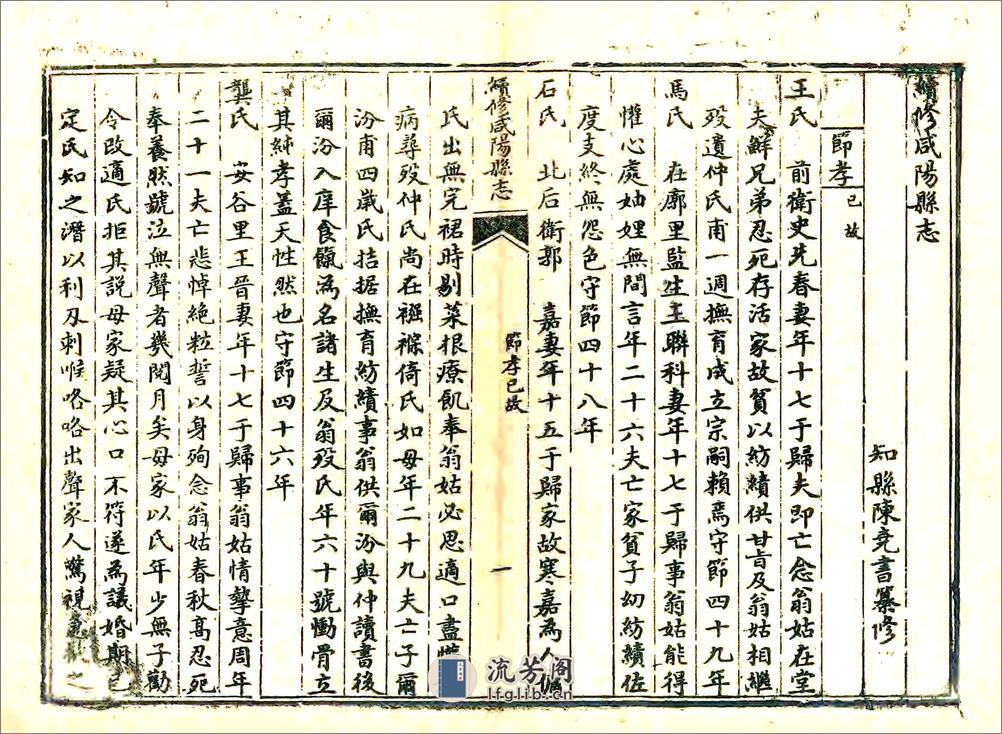 續修咸陽縣志
知縣陳堯書纂修
節孝已故
王氏 前衛史先春妻年十七于歸夫即亡念翁姑在堂
夫鮮兄弟忍死存活家故貧以紡績供甘旨及翁姑相繼
歿遺仲氏甫一週撫育成立宗嗣賴焉守節四十九年
馬氏 在廓里監生王聯科妻年十七于歸事翁姑能得
懽心處妯娌無間言年二十六夫亡家貧子幼紡績佐
度支終無怨色守節四十八年
石氏 北后衛郭 嘉妻年十五于歸家故寒嘉為人傭
續修咸陽縣志 節孝已故 一
氏出無完裙時剔菜根療飢奉翁姑必思適口盡懽
病尋歿仲氏尚在襁褓倚氏如母年二十九夫亡子爾
汾甫四歲氏拮据撫育紡績事翁供爾汾與仲讀書後
爾汾入庠食餼為名諸生及翁歿氏年六十號慟骨立
其純孝蓋天性然也守節四十六年
龔氏 安谷里王晉妻年十七于歸事翁姑情摯意周年
二十一夫亡悲悼絶粒誓以身殉念翁姑春秋髙忍死
奉養然號泣無聲者幾閱月矣母家以氏年少無子勸
令改適氏拒其說母家疑其心口不符遂為議婚期已
定氏知之潛以利刃刺喉咯咯出聲家人驚視之
流芳阁
lfglib.cn